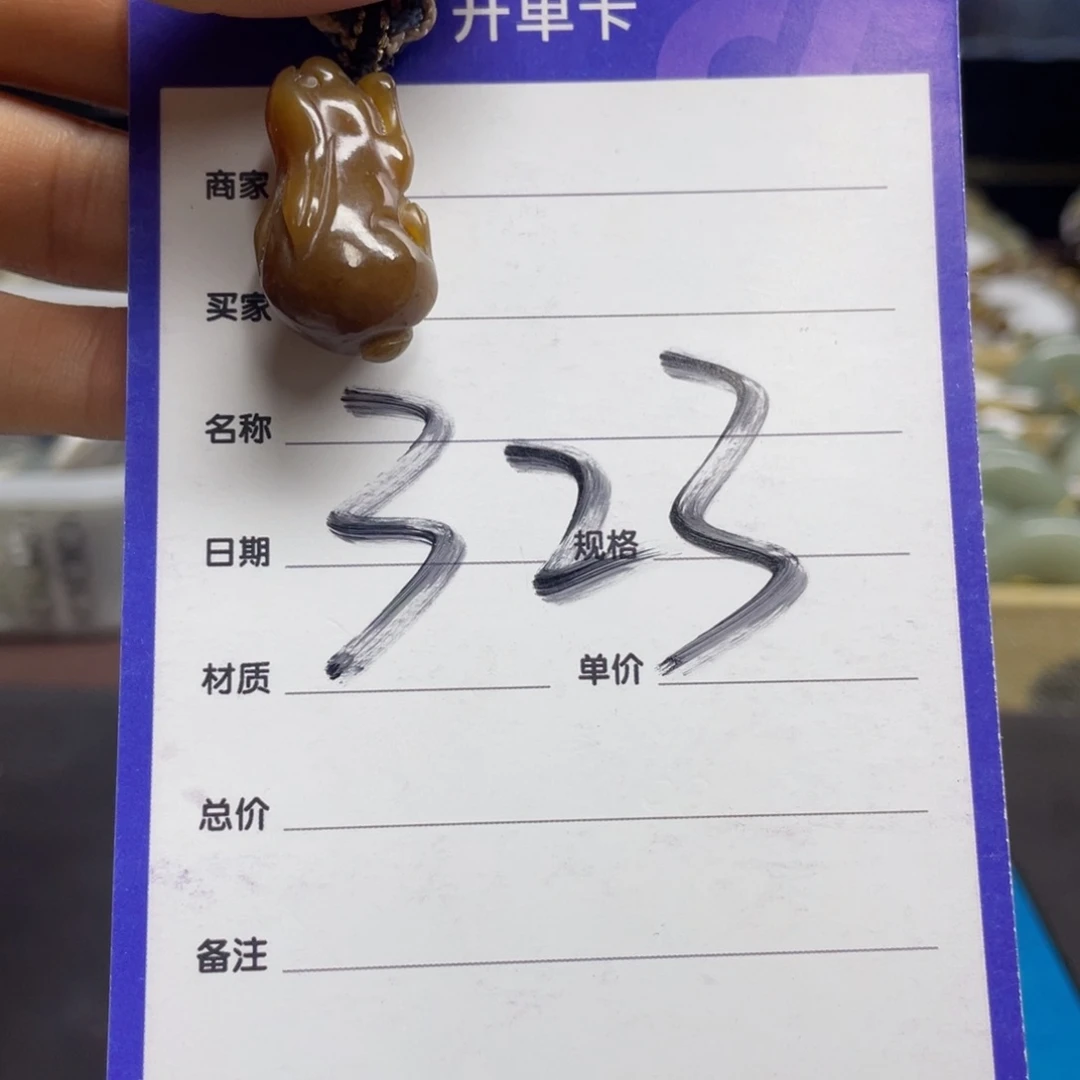 开单卡
商家
买家
名称
323
日期 规格
材质 单价
总价
备注